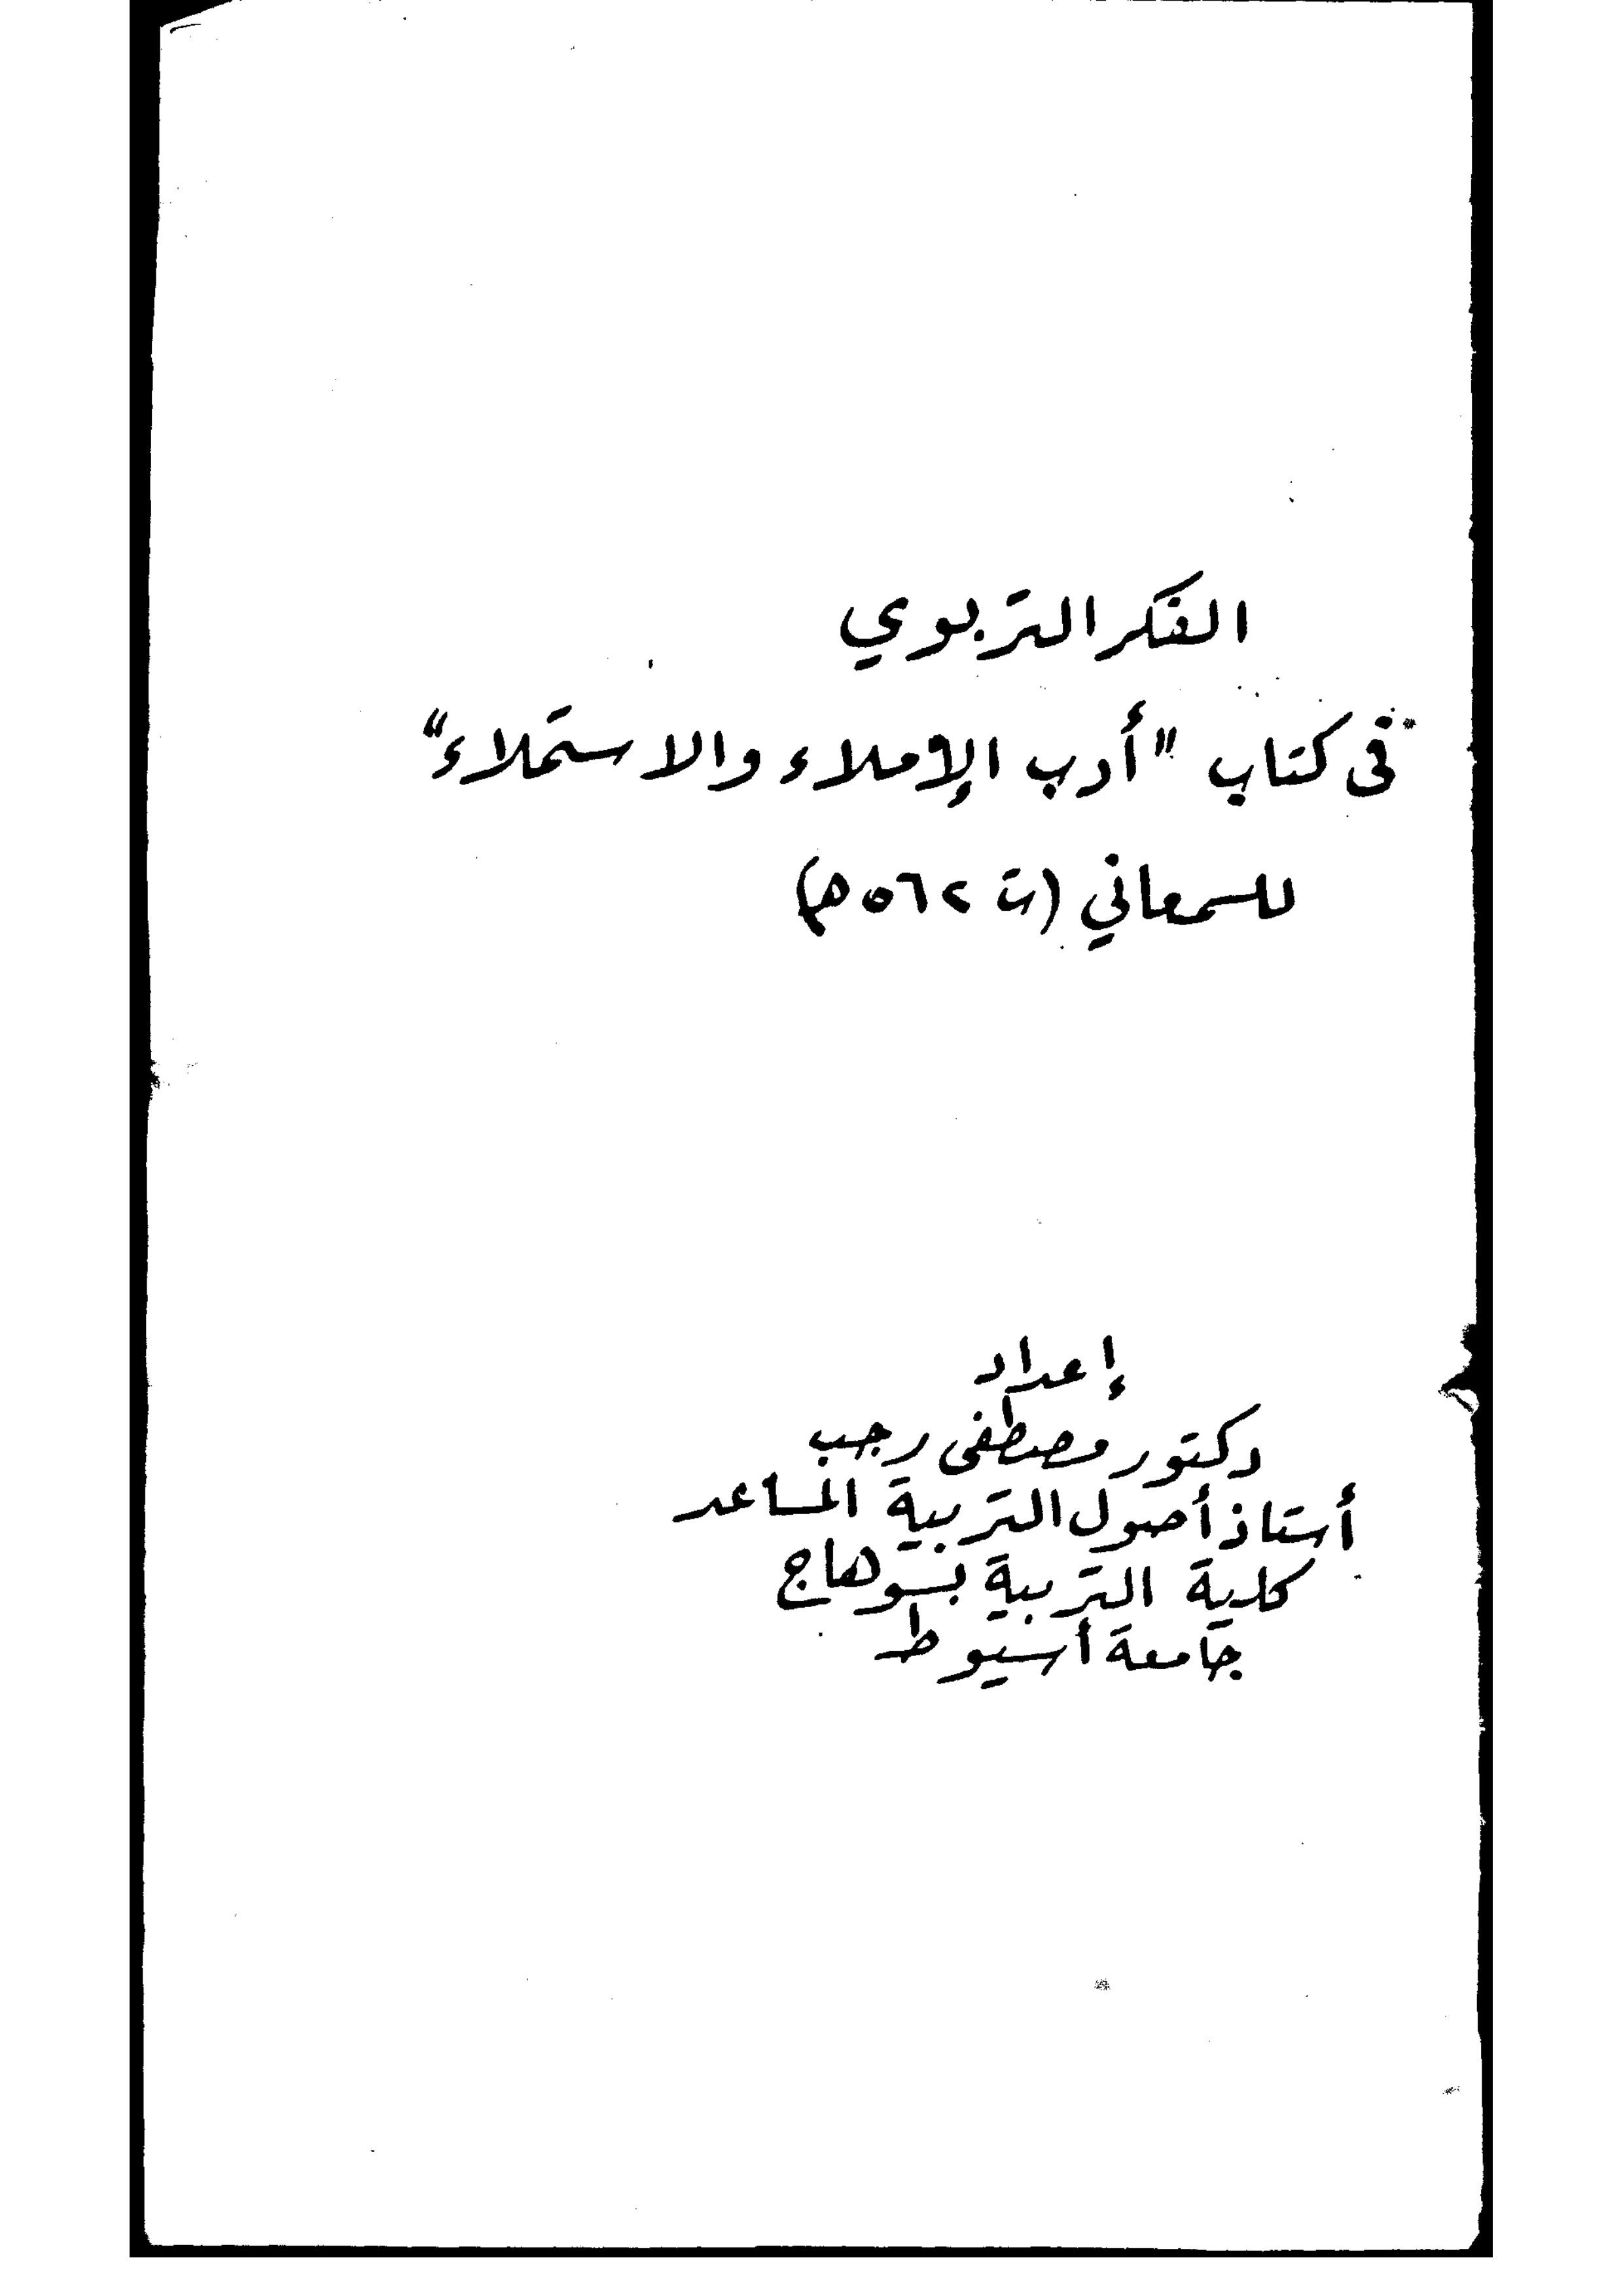 الفكر التربوي
فى كتاب "أدب الإملاء والاستملاء"
للسمعاني (ت ٥٦٢ هـ)
إعداد
دكتور مصطفى رجب
أستاذ أصول التربية المساعد
كلية التربية بسوهاج
جامعة أسيوط